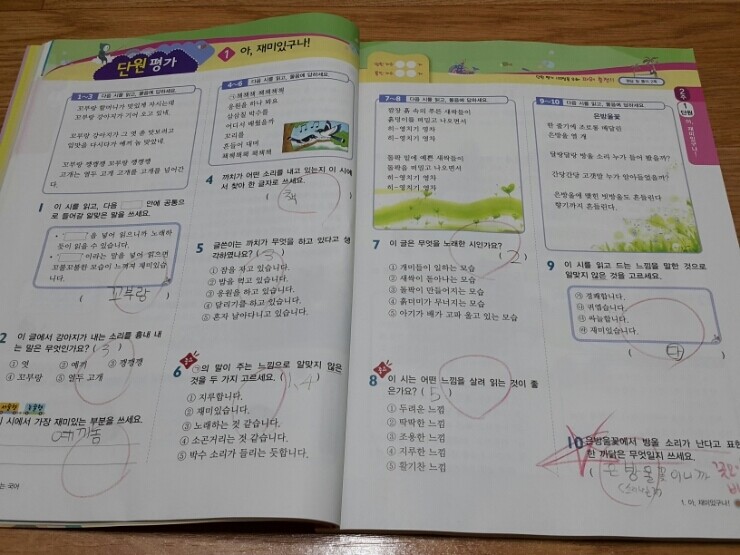 단원 평가
1 아, 재미있구나!
1~3 다음 시를 읽고, 물음에 답하세요.
꼬부랑 할머니가 맛있게 자시는데
꼬부랑 강아지가 기어 오고 있네.
꼬부랑 강아지가 그 엿 좀 맛보려고
입맛을 다시다가 매끼 놈 맞았네.
꼬부랑 깽깽깽 꼬부랑 깽깽깽
고개는 열두 고개 고개를 고개를 넘어간
다.
1 이 시를 읽고, 다음 안에 공통으
로 들어갈 알맞은 말을 쓰세요.
을 넣어 읽으니까 노래하
듯이 읽을 수 있습니다.
이라는 말을 넣어 읽으면
꼬불꼬불한 모습이 느껴져 재미있습
니다.
( 꼬부랑 )
2 이 글에서 강아지가 내는 소리를 흉내 내
는 말은 무엇인가요? ( 3 )
① 엿 ② 매끼 ③ 깽깽깽
④ 꼬부랑 ⑤ 열두 고개
이 시에서 가장 재미있는 부분을 쓰세요.
는 국어
4~6 다음 시를 읽고, 물음에 답하세요.
㉠책책책 책책책책
응원을 하나 봐요
4 까치가 어떤 소리를 내고 있는지 이 시에
서 찾아 한 글자로 쓰세요.
( 책 )
5 글쓴이는 까치가 무엇을 하고 있다고 생
각하였나요? ( 3 )
① 잠을 자고 있습니다.
② 밥을 먹고 있습니다.
③ 응원을 하고 있습니다.
④ 달리기를 하고 있습니다.
⑤ 혼자 날아다니고 있습니다.
6 ㉠의 말이 주는 느낌으로 알맞지 않은
것을 두 가지 고르세요. ( 1, 4 )
① 지루합니다.
② 재미있습니다.
③ 노래하는 것 같습니다.
④ 소곤거리는 것 같습니다.
⑤ 박수 소리가 들리는 듯합니다.
7~8 다음 시를 읽고, 물음에 답하세요.
텃밭 흙 속의 주든 새싹들이
흙덩이를 떠밀고 나오면서
히-영치기 영차
히-영치기 영차
돌밭 밑에 예쁜 새싹들이
돌밭을 떠밀고 나오면서
히-영치기 영차
히-영치기 영차
7 이 글은 무엇을 노래한 시인가요?
( 2 )
① 개미들이 일하는 모습
② 새싹이 돋아나는 모습
③ 돌팍이 만들어지는 모습
④ 흙더미가 무너지는 모습
⑤ 아기가 배가 고파 울고 있는 모습
8 이 시는 어떤 느낌을 살려 읽는 것이 좋
은가요? ( 5 )
① 두려운 느낌
② 딱딱한 느낌
③ 조용한 느낌
④ 지루한 느낌
⑤ 활기찬 느낌
9~10 다음 시를 읽고, 물음에 답하세요.
은방울꽃
한 줄기에 조로롱 매달린
은방울 열 개
달랑달랑 방울 소리 누가 들어 봤을까?
간당간당 고갯방 누가 알아들었을까?
은방울에 맺힌 빗방울도 흔들린다
향기까지 흔들린다.
9 이 시를 읽고 드는 느낌을 말한 것으로
알맞지 않은 것을 고르세요.
㉮ 경쾌합니다.
㉯ 귀엽습니다.
㉰ 싸늘합니다.
㉱ 재미있습니다.
10 은방울꽃에서 방울 소리가 난다고 표현
한 까닭은 무엇일지 쓰세요.
1. 아, 재미있구나!
2-2
1 단원
아, 재미있구나!